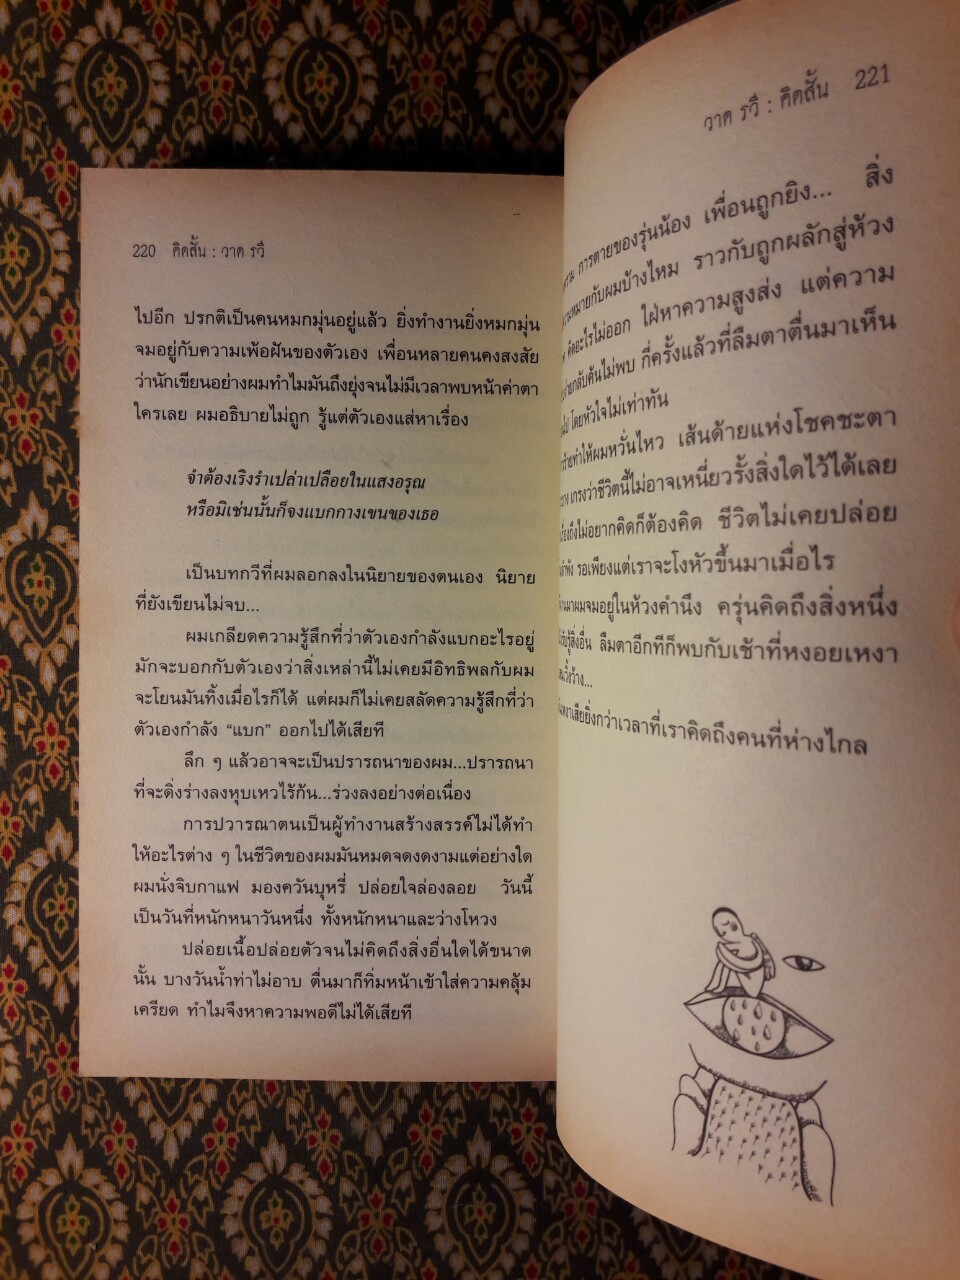 220 คิดสั้น : วาด รวี
ไปอีก ปรกติเป็นคนหมกมุ่นอยู่แล้ว ยิ่งทำงานยิ่งหมกมุ่น
จมอยู่กับความเพ้อฝันของตัวเอง เพื่อนหลายคนคงสงสัย
ว่านักเขียนอย่างผมทำไมมันถึงยุ่งจนไม่มีเวลาพบหน้าค่าตา
ใครเลย ผมอธิบายไม่ถูก รู้แต่ตัวเองแส่หาเรื่อง
จำต้องเริงรำเปล่าเปลือยในแสงอรุณ
หรือมิเช่นนั้นก็จงแบกกางเขนของเธอ
เป็นบทกวีที่ผมลอกลงในนิยายของตนเอง นิยาย
ที่ยังเขียนไม่จบ...
ผมเกลียดความรู้สึกที่ว่าตัวเองกำลังแบกอะไรอยู่
มักจะบอกกับตัวเองว่าสิ่งเหล่านี้ไม่เคยมีอิทธิพลกับผม
จะโยนมันทิ้งเมื่อไรก็ได้ แต่ผมก็ไม่เคยสลัดความรู้สึกที่ว่า
ตัวเองกำลัง “แบก” ออกไปได้เสียที
ลึก ๆ แล้วอาจจะเป็นปรารถนาของผม...ปรารถนา
ที่จะดิ่งร่างลงหุบเหวไร้ก้น...ร่วงลงอย่างต่อเนื่อง
การปวารณาตนเป็นผู้ทำงานสร้างสรรค์ไม่ได้ทำ
ให้อะไรต่าง ๆ ในชีวิตของผมมันหมดจดงดงามแต่อย่างใด
ผมนั่งจิบกาแฟ มองควันบุหรี่ ปล่อยใจล่องลอย วันนี้
เป็นวันที่หนักหนาวันหนึ่ง ทั้งหนักหนาและว่างโหวง
ปล่อยเนื้อปล่อยตัวจนไม่คิดถึงสิ่งอื่นใดได้ขนาด
นั้น บางวันน้ำท่าไม่อาบ ตื่นมาก็ทิ่มหน้าเข้าใส่ความคลุ้ม
เครียด ทำไมจึงหาความพอดีไม่ได้เสียที
วาด รวี : คิดสั้น 221
การตายของรุ่นน้อง เพื่อนถูกยิง... สิ่ง
กับผมบ้างไหม ราวกับถูกผลักสู่ห้วง
คิดอะไรไม่ออก ใฝ่หาความสูงส่ง แต่ความ
กลับค้นไม่พบ กี่ครั้งแล้วที่ลืมตาตื่นมาเห็น
โดยหัวใจไม่เท่าทัน
ทำให้ผมหวั่นไหว เส้นด้ายแห่งโชคชะตา
เกรงว่าชีวิตนี้ไม่อาจเหนี่ยวรั้งสิ่งใดไว้ได้เลย
ไม่อยากคิดก็ต้องคิด ชีวิตไม่เคยปล่อย
รอเพียงแต่เราจะโงหัวขึ้นมาเมื่อไร
ผมจมอยู่ในห้วงคำนึง ครุ่นคิดถึงสิ่งหนึ่ง
สิ่งอื่น ลืมตาอีกทีก็พบกับเช้าที่หงอยเหงา
เสียยิ่งกว่าเวลาที่เราคิดถึงคนที่ห่างไกล